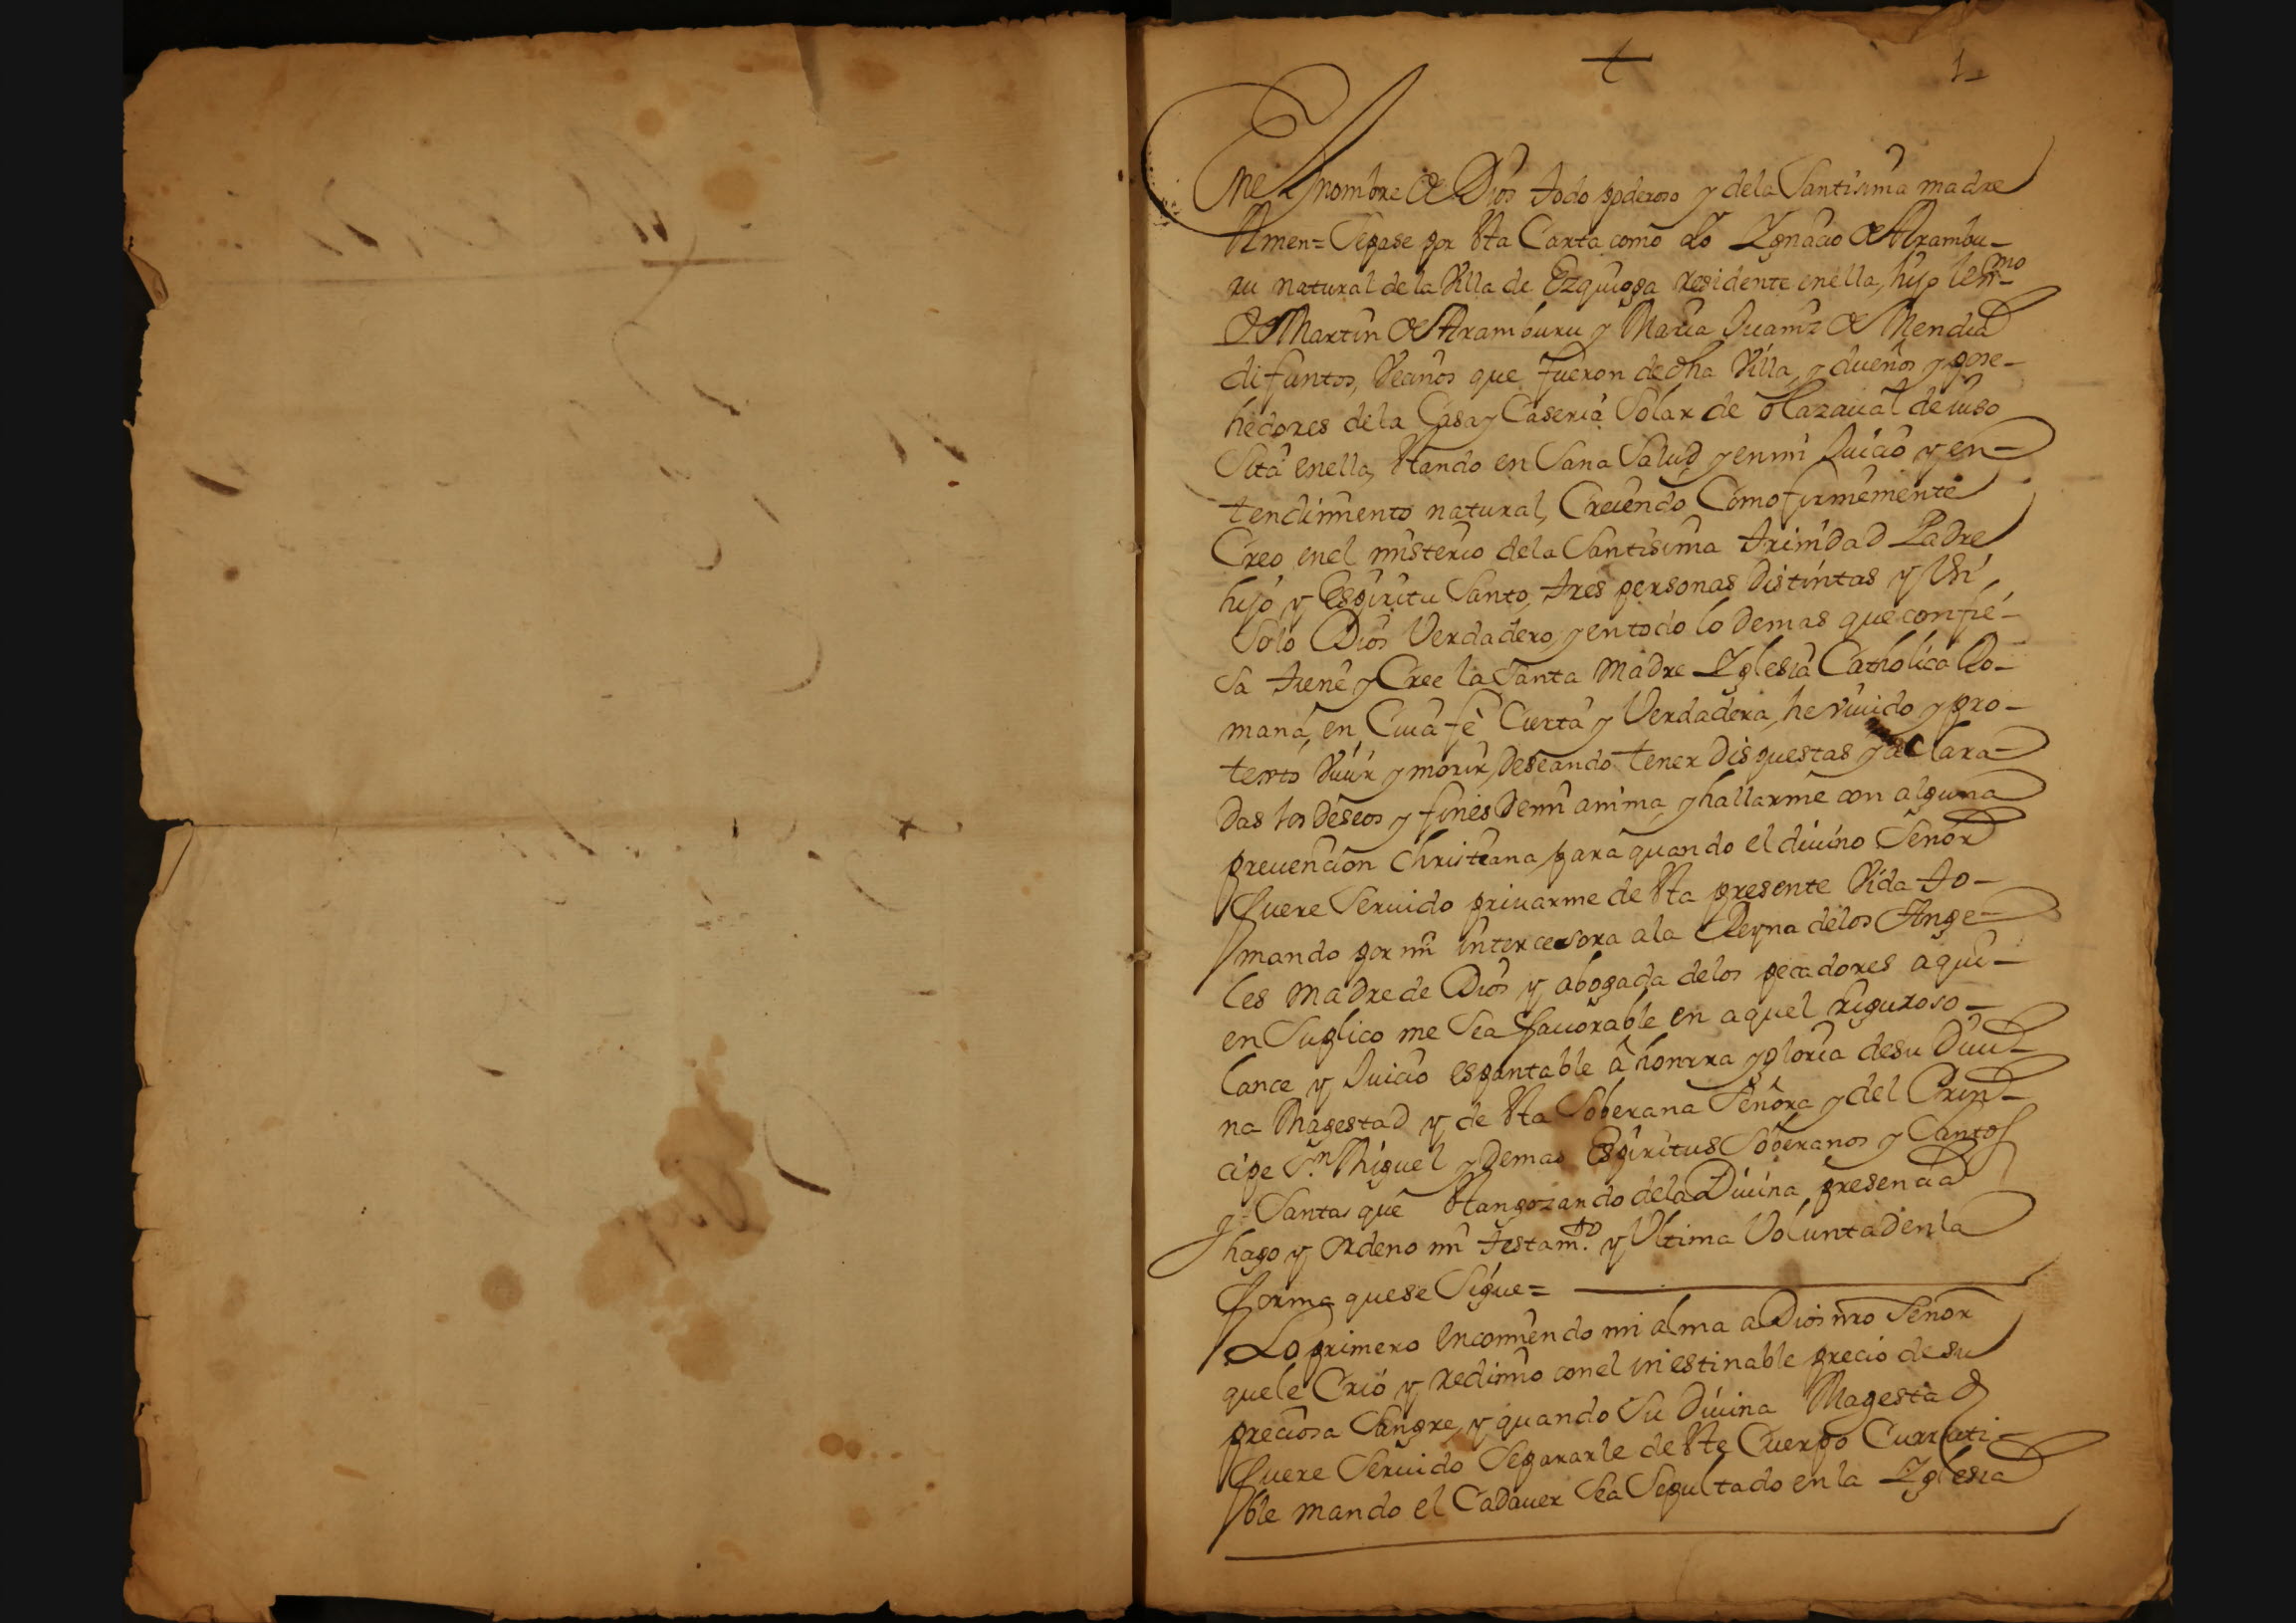 1
En el nombre de Dios todo poderoso y dela Santisima madre
Amen = Sepase por esta Carta como Yo Ygnacio de Arambu-
ru natural de la Villa de Ezquioga residente enella, hijo lexmo
de Martin de Aramburu y Maria Juaniz de Mendia
difuntos, Vecinos que fueron de dha Villa, y dueños y pose-
hedores dela Casa y Caseria Solar de Olazaual de iuso
Sita enella, estando en Sana Salud y en mi Juicio y en-
tendimiento natural, Creiendo Como firmemente
Creo enel misterio dela Santisima trinidad Padre
hijo y Espiritu Santo, tres personas Distintas y Un
Solo Dios Verdadero, y entodo lo Demas que confie-
sa tiene y Cree la Santa Madre Yglesia Catholica Ro-
mana, en Cuia fe Cierta y Verdadera, he viuido y pro-
texto viuir y morir, Deseando tener Dispuestas y declara-
Das los Deseos y fines Demi anima, y hallarme con alguna
preuencion christiana, para quando el diuino Señor
fuere Seruido priuarme de esta presente Vida to-
mando por mi intercesora ala Reyna delos Ange-
les Madre de Dios y abogada delos pecadores aqui-
en Suplico me Sea fauorable en aquel riguroso-
lance y Juicio espantable â honrra y gloria desu Diui-
na Magestad y de esta Soberana Señora y del Prin-
cipe Sn. Miguel y Demas Espiritus Soberanos y Santos
y Santas que estan gozando dela Diuina presencia
hago y ordeno mi testamto. y Ultima Voluntad en la
forma que se Sigue =
Lo primero encomiendo mi alma a Dios nro Señor
que le Crió y redimio con el inestinable precio de su
preciosa Sangre, y quando Su Diuina Magestad
fuere Seruido Separarle de este Cuerpo Currati-
ble mando el Cadauer Sea Sepultado en la Yglesia